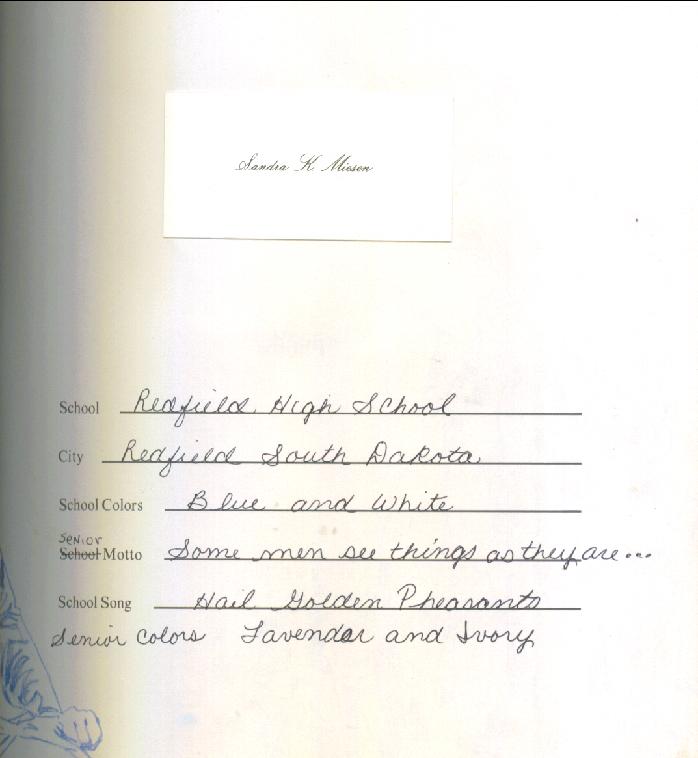 Sandra K Miesen
School Redfield High School
City Redfield South Dakota
School Colors Blue and White
Senior
School Motto Some men see things as they are...
School Song Hail Golden Pheasants
Senior Colors Lavender and Ivory